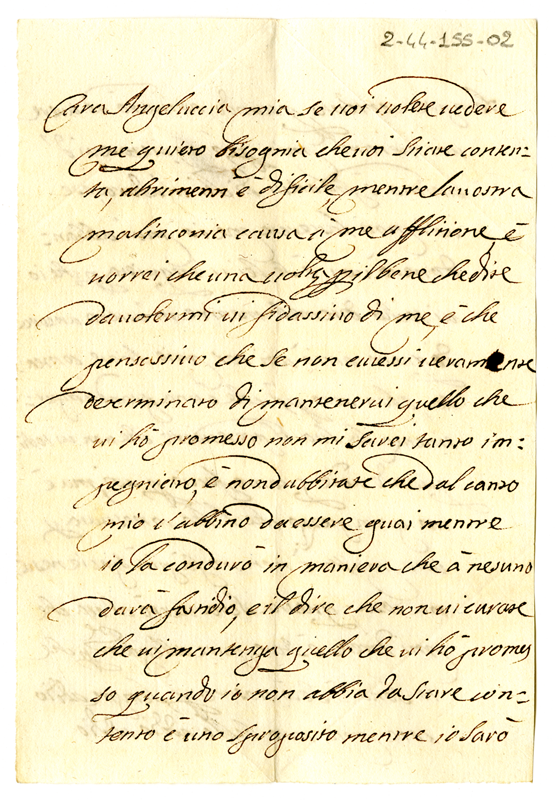 2-44-155-02
Cara Angeluccia mia se voi volete vedere
me quieto bisognia che voi stiate conten=
ta, altrimenti é dificile, mentre la vostra
malinconia causa á me afflitione, é
vorrei che una volta p il bene che dite
da volermi vi fidassivo di me, é che
pensassivo che se non avessi veramente
determinato di mantenervi quello che
vi hó promesso non mi sarei tanto im=
pegniato, é non dubbitate che dal canto
mio v'abbino da essere guai mentre
io la conduró in maniera che á nesuno
dará fastidio, e il dire che non vi curate
che vi mantenga quello che vi hó promes
so quando io non abbia da stare con=
tento é uno sproposito mentre io saró